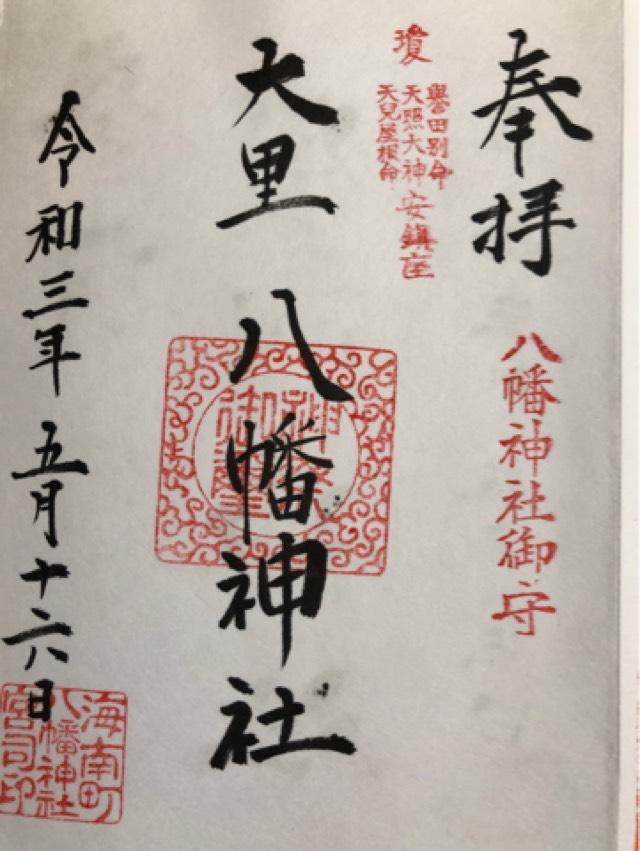 奉拝
八幡神社御守
瓊
譽田別命
天照大神
天兒屋根命
安鎭座
大里 八幡神社
令和三年 五月十六日
海南町
八幡神社
宮司印